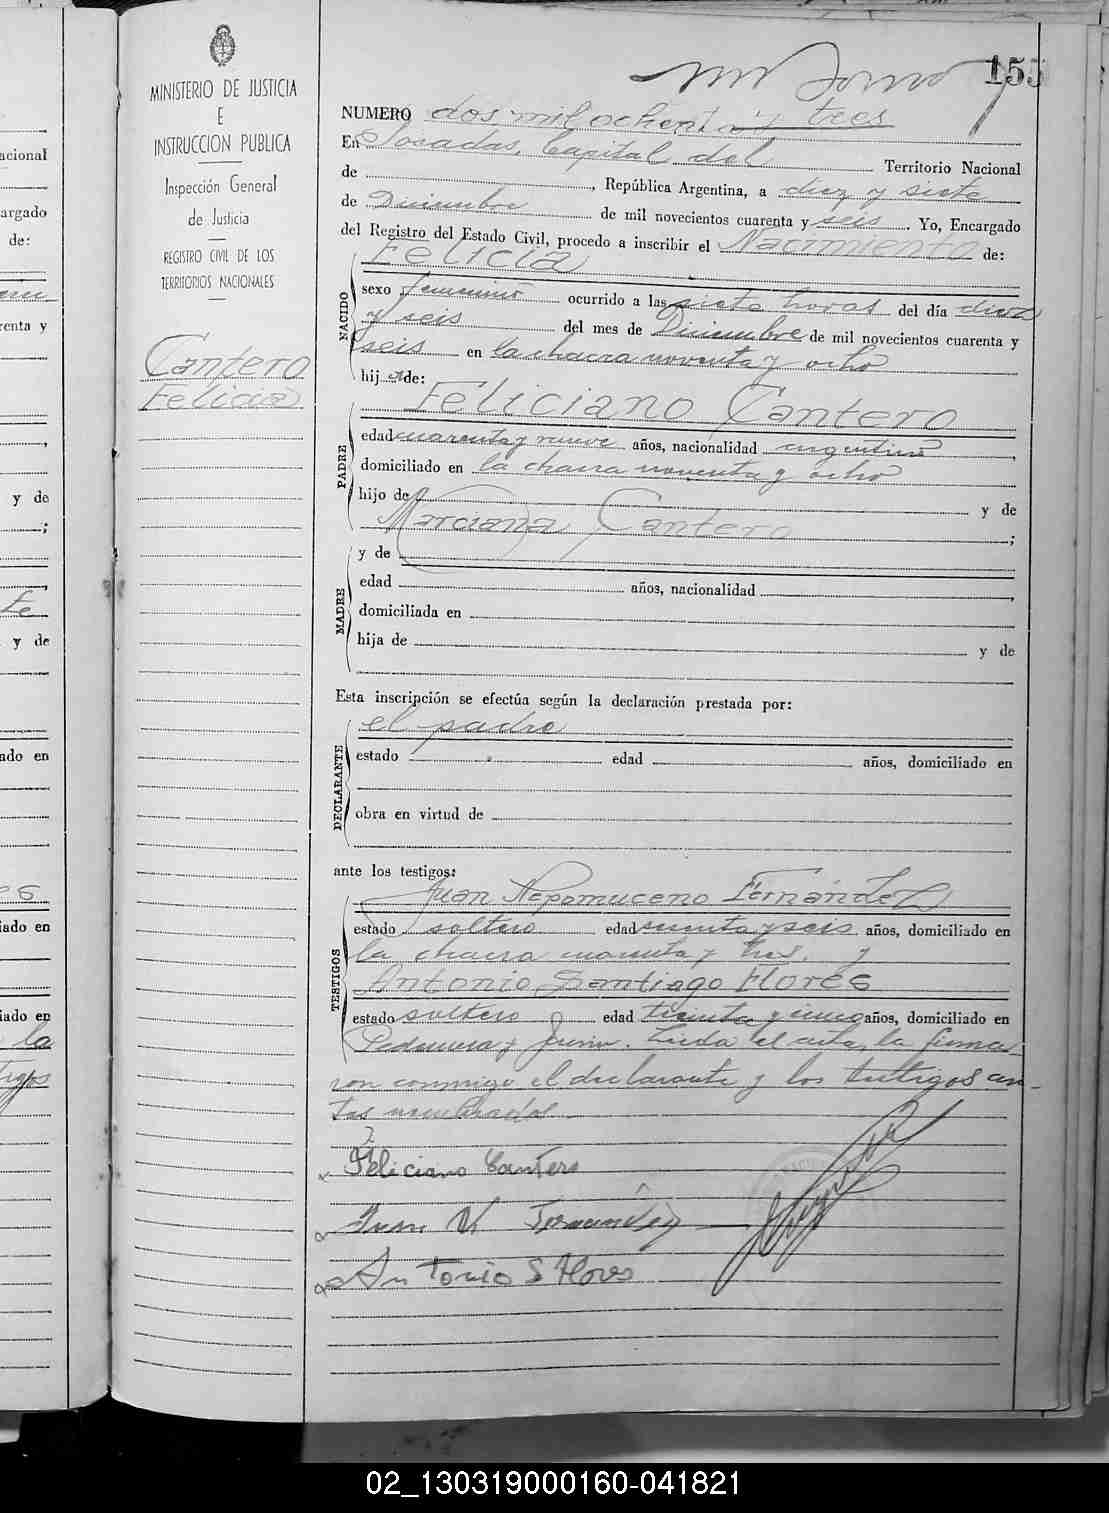 155
MINISTERIO DE JUSTICIA
E
INSTRUCCION PUBLICA
Inspección General
de Justicia
REGISTRO CIVIL DE LOS
TERRITORIOS NACIONALES
Cantero
Felicia
NUMERO dos mil ochenta y tres
En Posadas, Capital del Territorio Nacional
de , República Argentina, a diez y siete
de Diciembre de mil novecientos cuarenta y seis. Yo, Encargado
del Registro del Estado Civil, procedo a inscribir el Nacimiento de:
Felicia
NACIDO
sexo femenino ocurrido a las siete horas del día diez
y seis del mes de Diciembre de mil novecientos cuarenta y
seis en la chacra noventa y ocho
hija de:
Feliciano Cantero
PADRE
edad cuarenta y nueve años, nacionalidad argentino,
domiciliado en la chacra noventa y ocho
hijo de y de
Marciana Cantero;
MADRE
y de
edad años, nacionalidad ,
domiciliada en
hija de y de
Esta inscripción se efectúa según la declaración prestada por:
DECLARANTE
el padre
estado edad años, domiciliado en
obra en virtud de
ante los testigos:
TESTIGOS
Juan Nepomuceno Fernández
estado soltero edad y seis años, domiciliado en
la chacra noventa y tres, y
Antonio Santiago Flores
estado soltero edad treinta y cinco años, domiciliado en
Pedernera y Junin. Leida el acta, la firma-
ron conmigo el declarante y los testigos an-
tes nombrados.
Feliciano Cantero
Juan N Fernandez
Antonio S Flores
acional
argado
de:
renta y
y de
;
y de
ado en
iado en
iado en
la
02_130319000160-041821